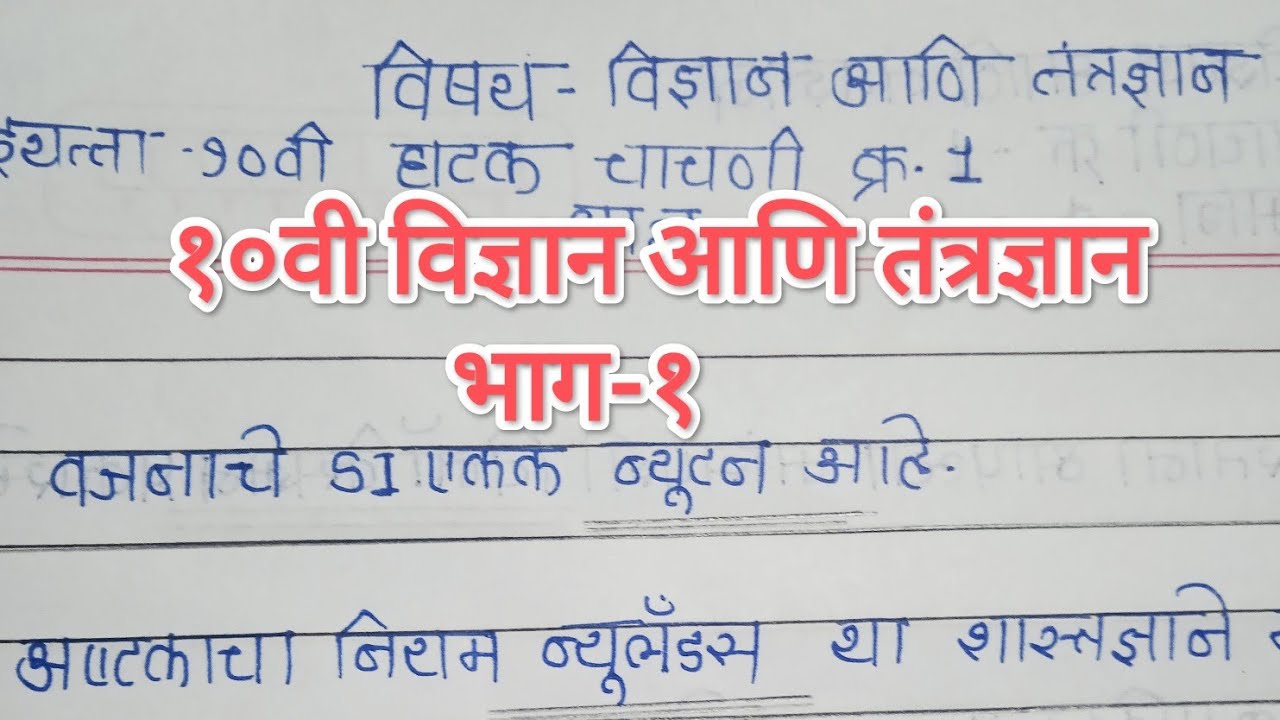 विषय - विज्ञान आणि तंत्रज्ञान
इयत्ता - १०वी घटक चाचणी क्र. 1
१०वी विज्ञान आणि तंत्रज्ञान
भाग-१
वजनाचे SI एकक न्यूटन आहे.
अष्टकाचा नियम न्यूलँडस या शास्त्रज्ञाने